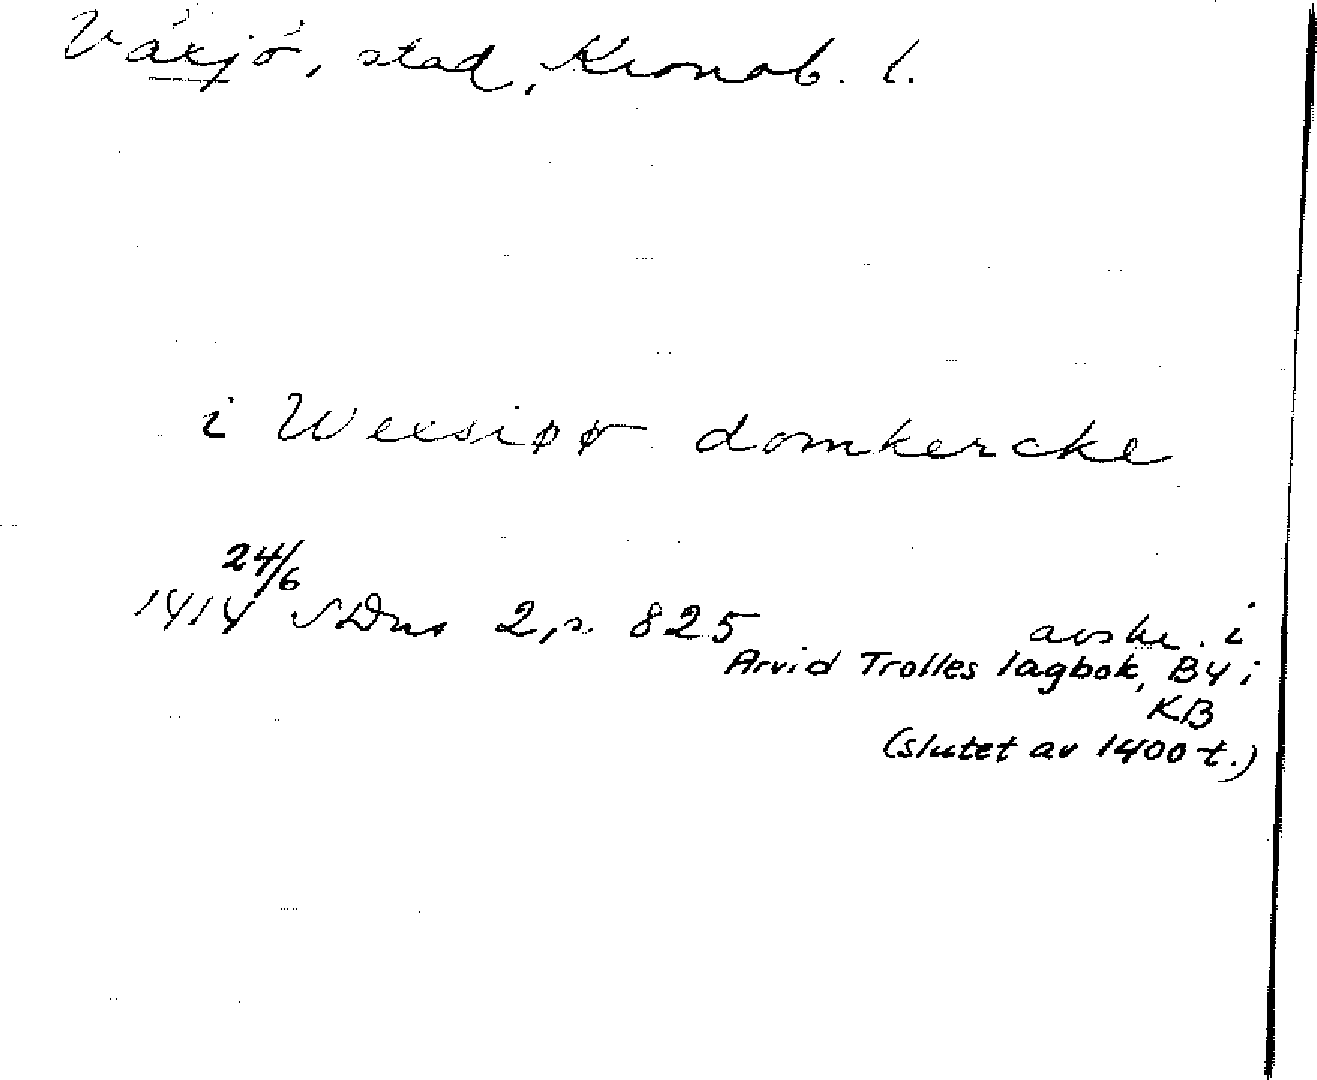 Växjö, stad, Kronob. l.
i Wexsiøø domkercke
24/6
1414 SDns 2, s. 825 avskr. i
Arvid Trolles lagbok, B4 i
KB
(slutet av 1400-t.)